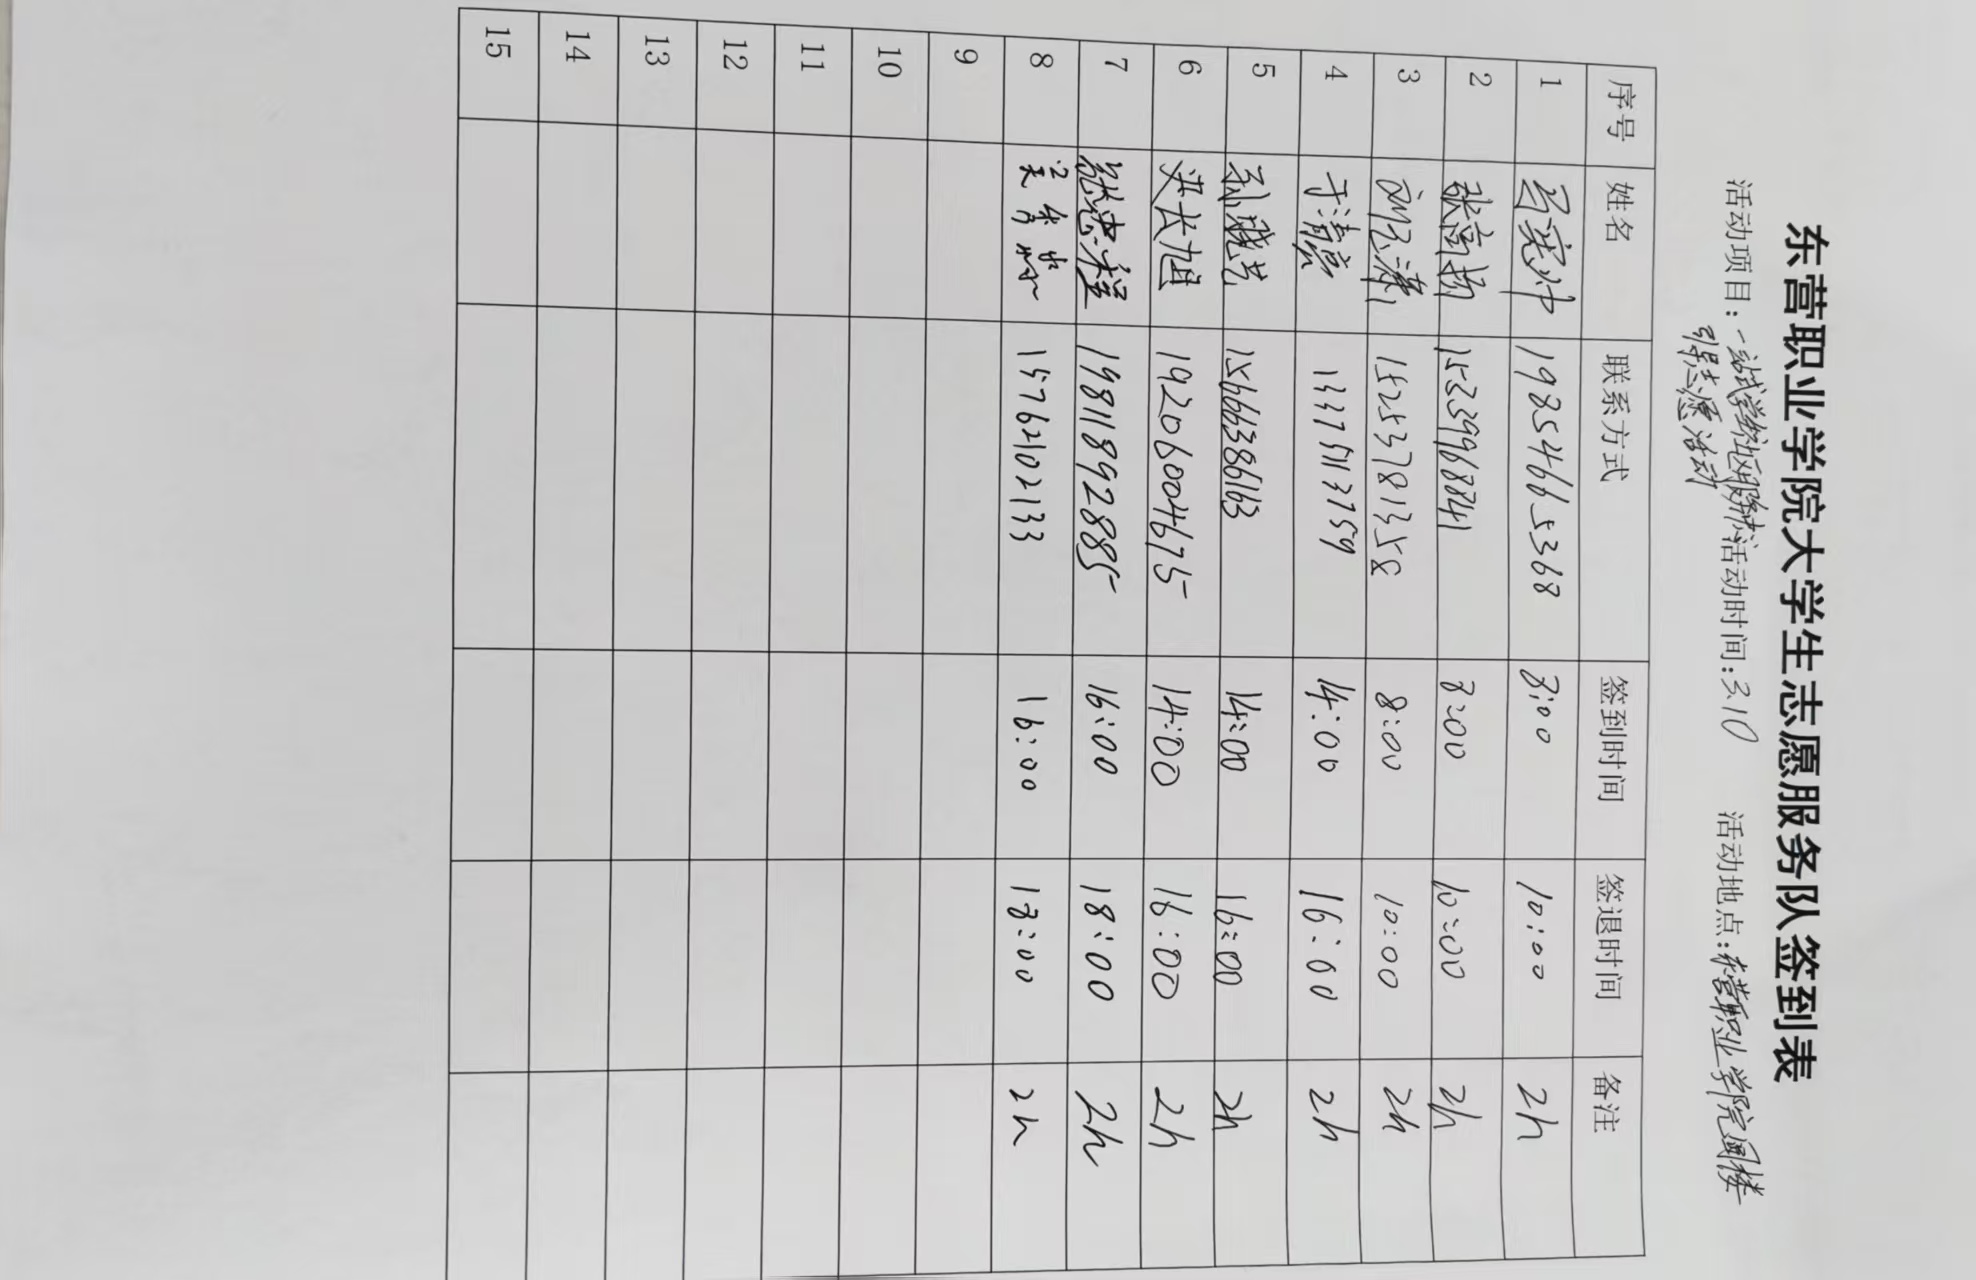 东营职业学院大学生志愿服务队签到表
活动项目：一站式学生社区服务 活动时间：3.10 活动地点：东营职业学院圆楼
引导志愿活动
序号 姓名 联系方式 签到时间 签退时间 备注
1 19854665368 8:00 10:00 2h
2 张高扬 15339968841 8:00 10:00 2h
3 15253781358 8:00 10:00 2h
4 于清宸 14:00 16:00 2h
5 15666386163 14:00 16:00 2h
6 19206004675 14:00 16:00 2h
7 张忠程 19811892885 16:00 18:00 2h
8 15762102133 16:00 18:00 2h
9
10
11
12
13
14
15